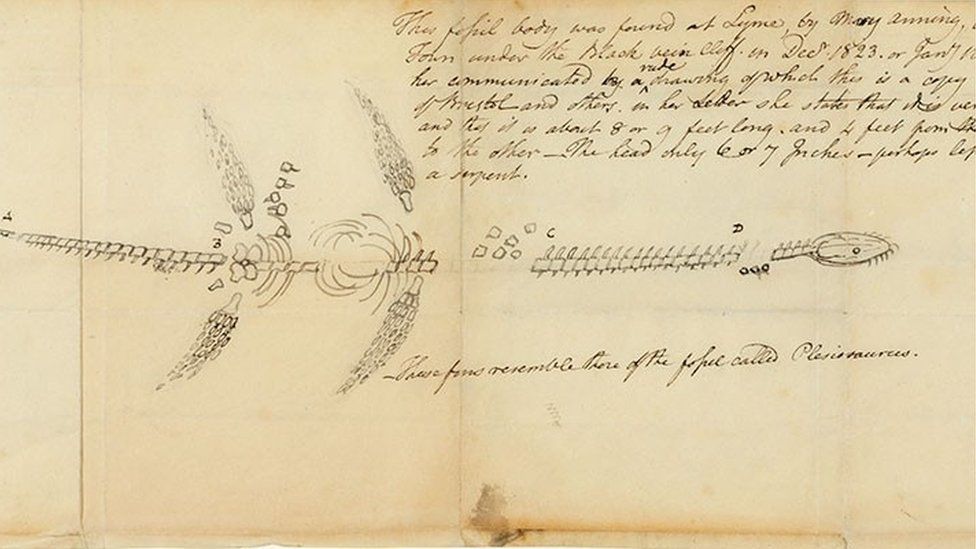 This fossil body was found at Lyme, by Mary Anning,
Town under the Black vein Cliff. in Decr. 1823. or Jany
rude
her communicated by a drawing of which this is a copy
of Bristol and others. in her Letter she states that it is
and that it is about 8 or 9 feet long. and 4 feet from
to the other – The head only 6 or 7 Inches – perhaps
a serpent.
A
B
C
D
– These fins resemble those of the fossil called Plesiosaurus.